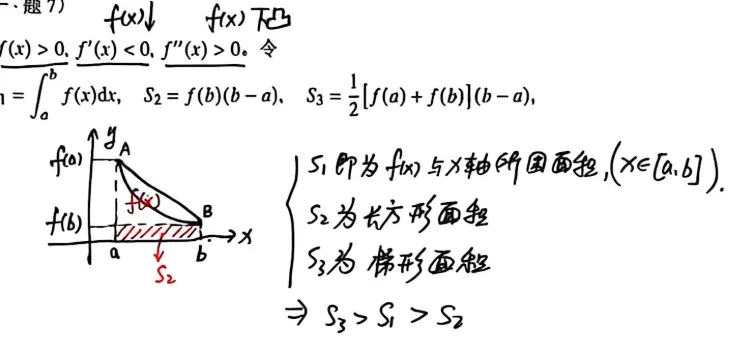 一、题7)
f(x)↓ f(x)下凸
f(x) > 0, f′(x) < 0, f″(x) > 0。令
= ∫ₐᵇ f(x)dx, S₂ = f(b)(b − a), S₃ = 1/2[f(a) + f(b)](b − a),
y
A
f(a)
f(x)
B
f(b)
a b x
S₂
S₁即为f(x)与x轴所围面积,(x∈[a,b]).
S₂为长方形面积
S₃为梯形面积
⇒ S₃ > S₁ > S₂